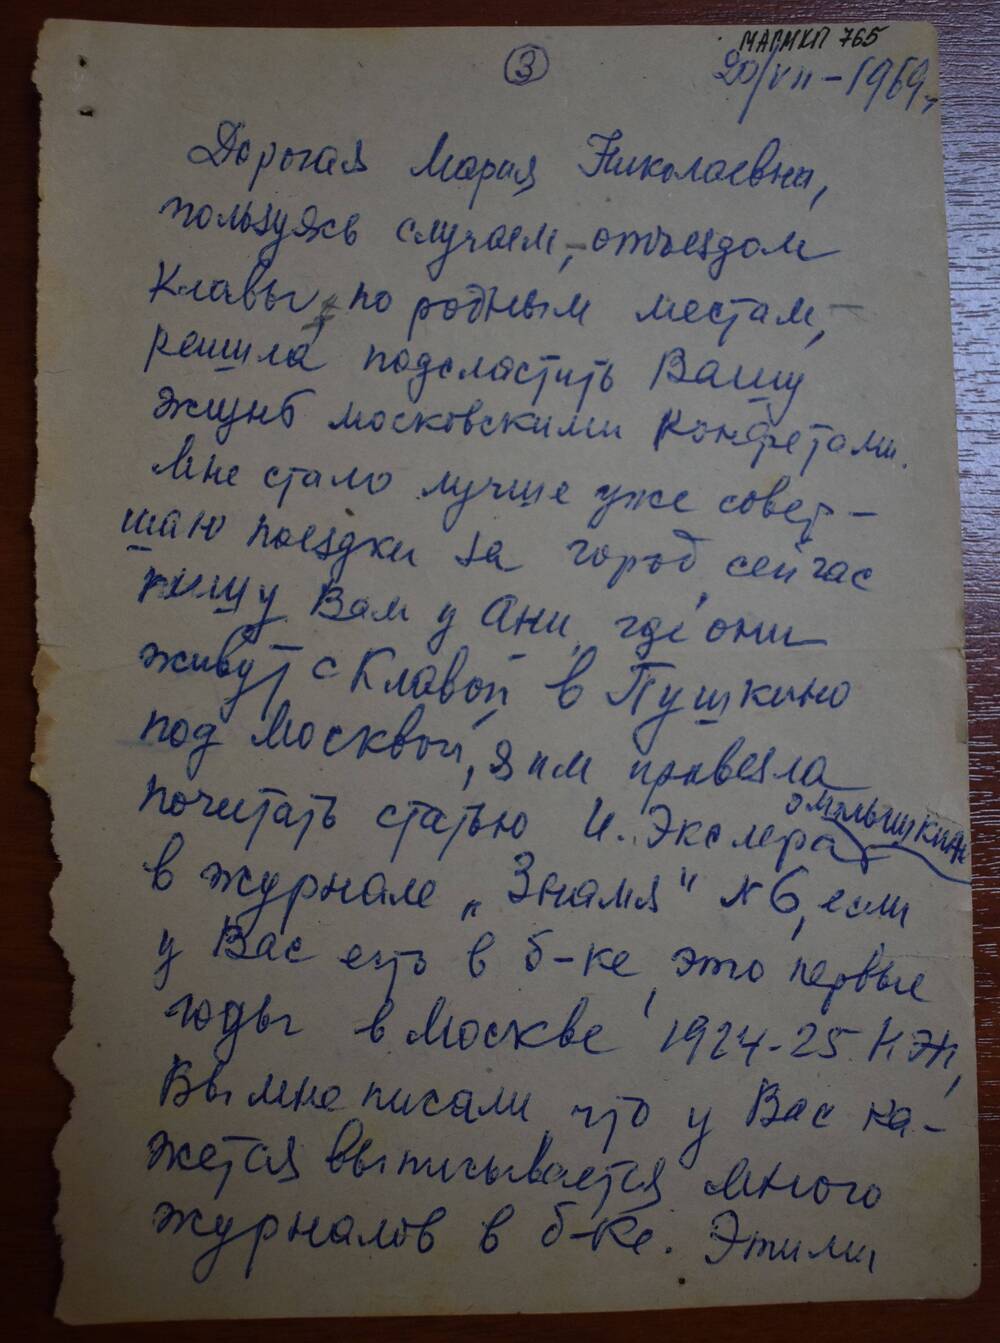 МАРМКП 765
③
20/VII-1969г.
Дорогая Мария Николаевна,
пользуясь случаем,-отъездом
Клавы, по родным местам,-
решила подсластить Вашу
жизнь московскими конфетами.
Мне стало лучше уже совер-
шаю поездки за город, сейчас
пишу Вам у Ани, где они
живут с Клавой в Пушкино
под Москвой, я им привезла
почитать статью И. Экслера о Малышкине
в журнале „Знамя" №6, если
у Вас есть в б-ке, это первые
годы в Москве, 1924-25
Вы мне писали, что у Вас ка-
жется выписывается много
журналов в б-ке. Этими